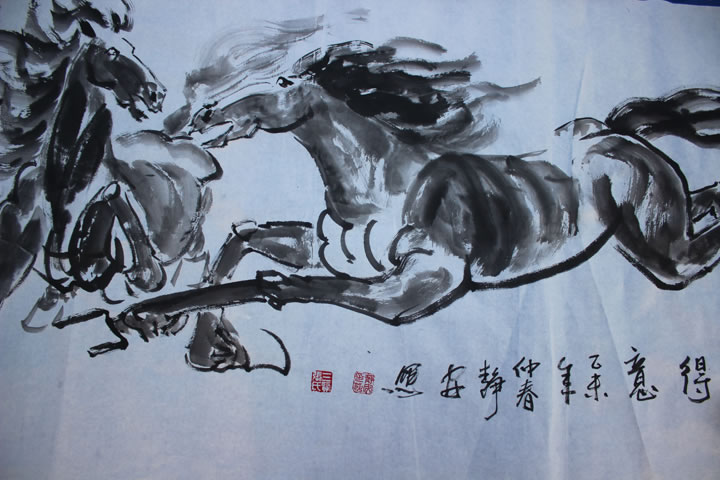 得意乙未年仲春靜安